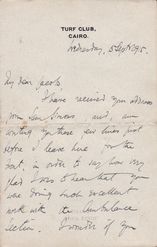 TURF CLUB,
CAIRO.
Wednesday, 5 Sept
My dear
I have received your address
from and, am
writing you these few lines just
before I leave here for the
boat, in order to say how very
glad I was to hear that you
was doing such excellent
work with the Ambulance
Section. I wonder if you